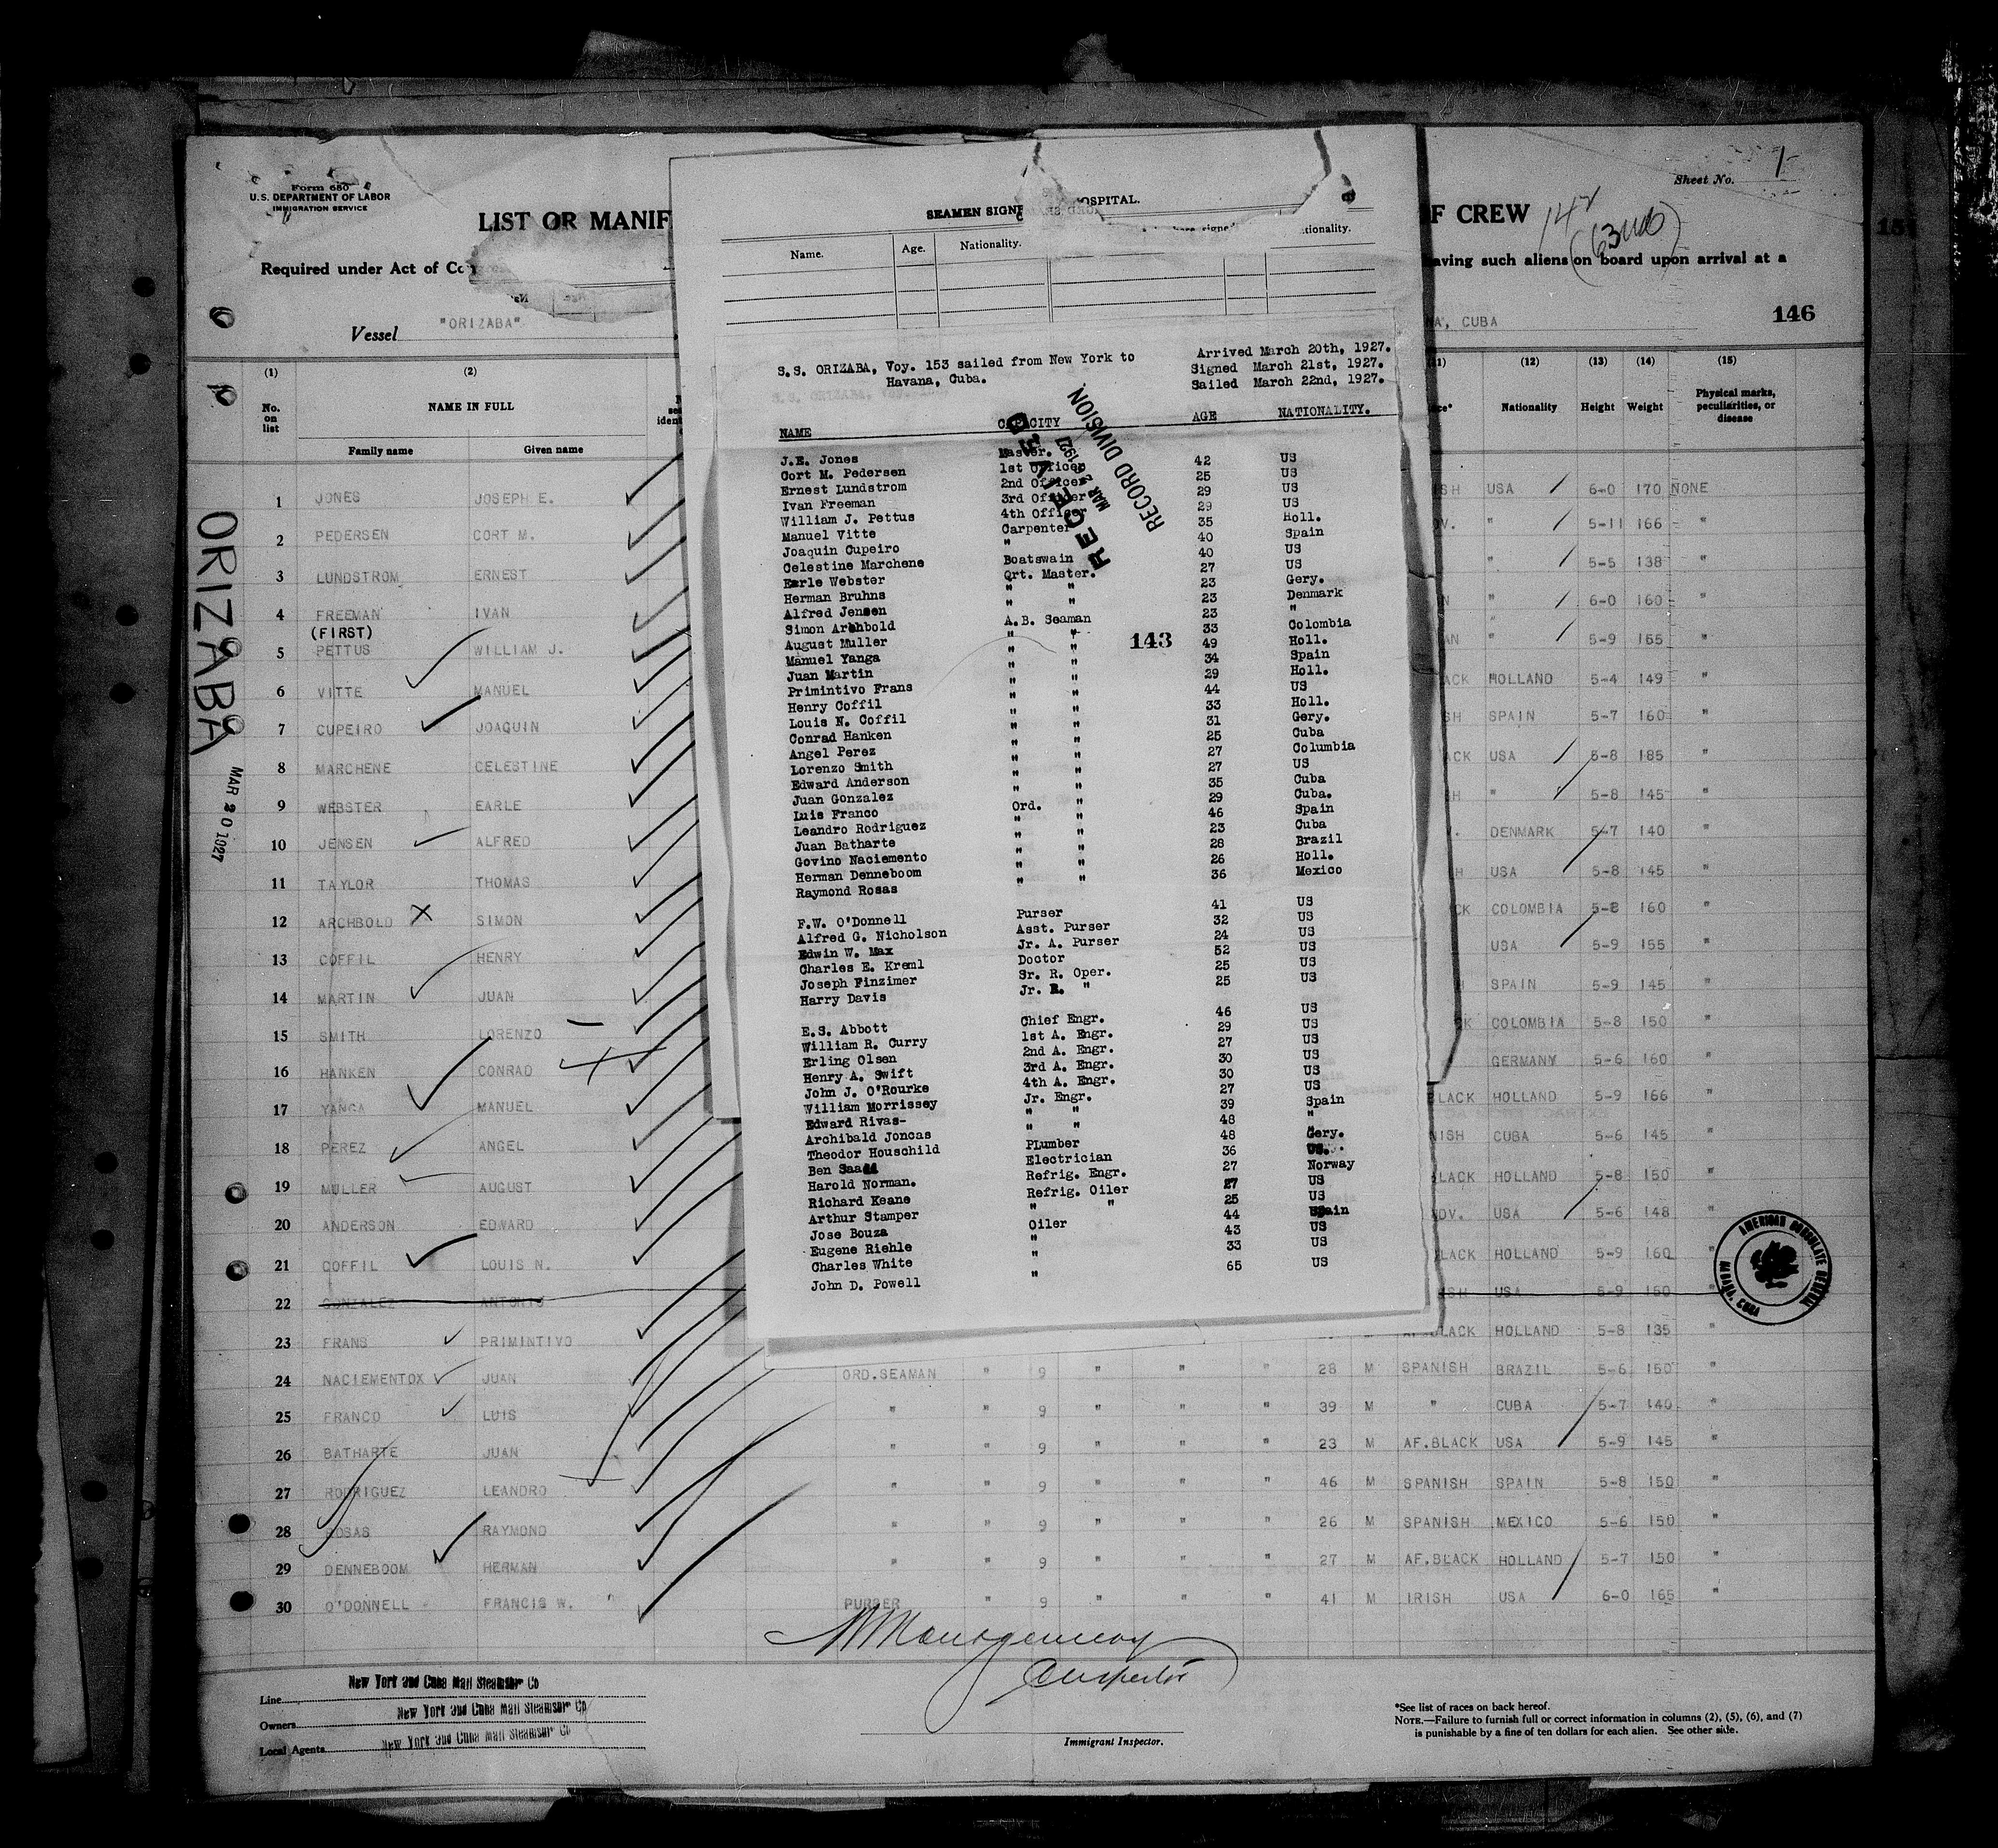 Form 680
U.S. DEPARTMENT OF LABOR
IMMIGRATION SERVICE
Sheet No. 1
LIST OR MANIF
F CREW
Required under Act of Co
aving such aliens on board upon arrival at a
Vessel "ORIZABA"
A, CUBA
146
ORIZABA
MAR 20 1927
SEAMEN SIGNE
OSPITAL.
Name. Age. Nationality. tionality.
S.S. ORIZABA, Voy. 153 sailed from New York to
Havana, Cuba.
Arrived March 20th, 1927.
Signed March 21st, 1927.
Sailed March 22nd, 1927.
RECEIVED
MAR 1927
RECORD DIVISION
143
NAME CAPACITY AGE NATIONALITY.
J.E. Jones Master. 42 US
Cort M. Pedersen 1st Officer 25 US
Ernest Lundstrom 2nd Officer 29 US
Ivan Freeman 3rd Officer 29 US
William J. Pettus 4th Officer 35 Holl.
Manuel Vitte Carpenter 40 Spain
Joaquin Cupeiro " 40 US
Celestine Marchene Boatswain 27 US
Earle Webster Qrt. Master. 23 Gery.
Herman Bruhns " " 23 Denmark
Alfred Jensen " " 23 "
Simon Archbold A.B. Seaman 33 Colombia
August Muller " " 49 Holl.
Manuel Yanga " " 34 Spain
Juan Martin " " 29 Holl.
Primintivo Frans " " 44 US
Henry Coffil " " 33 Holl.
Louis N. Coffil " " 31 Gery.
Conrad Hanken " " 25 Cuba
Angel Perez " " 27 Columbia
Lorenzo Smith " " 27 US
Edward Anderson " " 35 Cuba
Juan Gonzalez " " 29 Cuba.
Luis Franco Ord. " 46 Spain
Leandro Rodriguez " " 23 Cuba
Juan Batharte " " 28 Brazil
Govino Naciemento " " 26 Holl.
Herman Denneboom " " 36 Mexico
Raymond Rosas " "
F.W. O'Donnell Purser 41 US
Alfred G. Nicholson Asst. Purser 32 US
Edwin W. Max Jr. A. Purser 24 US
Charles E. Kreml Doctor 52 US
Joseph Finzimer Sr. R. Oper. 25 US
Harry Davis Jr. R. " 25 US
E.S. Abbott Chief Engr. 46 US
William R. Curry 1st A. Engr. 29 US
Erling Olsen 2nd A. Engr. 27 US
Henry A. Swift 3rd A. Engr. 30 US
John J. O'Rourke 4th A. Engr. 30 US
William Morrissey Jr. Engr. 27 US
Edward Rivas- " " 39 Spain
Archibald Joncas " " 48 "
Theodor Houschild PLumber 48 Gery.
Ben Saad Electrician 36 US.
Harold Norman. Refrig. Engr. 27 Norway
Richard Keane Refrig. Oiler 27 US
Arthur Stamper " " 25 US
Jose Bouza Oiler 44 Spain
Eugene Riehle " 43 US
Charles White " 33 US
John D. Powell " 65 US
(1) (2) (11) (12) (13) (14) (15)
No. on list NAME IN FULL Nationality Height Weight Physical marks, peculiarities, or disease
Family name Given name
1 JONES JOSEPH E. SH USA 6-0 170 NONE
2 PEDERSEN CORT M. OV. " 5-11 166 "
3 LUNDSTROM ERNEST " 5-5 138 "
4 FREEMAN IVAN N " 6-0 160 "
(FIRST)
5 PETTUS WILLIAM J. AN " 5-9 165 "
6 VITTE MANUEL ACK HOLLAND 5-4 149 "
7 CUPEIRO JOAQUIN SH SPAIN 5-7 160 "
8 MARCHENE CELESTINE ACK USA 5-8 185 "
9 WEBSTER EARLE H " 5-8 145 "
10 JENSEN ALFRED . DENMARK 5-7 140 "
11 TAYLOR THOMAS H USA 5-8 145 "
12 ARCHBOLD SIMON CK COLOMBIA 5-8 160 "
13 COFFIL HENRY USA 5-9 155 "
14 MARTIN JUAN H SPAIN 5-9 145 "
15 SMITH LORENZO CK COLOMBIA 5-8 150 "
16 HANKEN CONRAD GERMANY 5-6 160 "
17 YANGA MANUEL BLACK HOLLAND 5-9 166 "
18 PEREZ ANGEL NISH CUBA 5-6 145 "
19 MULLER AUGUST BLACK HOLLAND 5-8 150 "
20 ANDERSON EDWARD OV. USA 5-6 148 "
21 COFFIL LOUIS N. LACK HOLLAND 5-9 160 "
22 GONZALEZ ANTONIO SH USA 5-9 150 "
23 FRANS PRIMINTIVO BLACK HOLLAND 5-8 135 "
24 NACIEMENTOX JUAN ORD.SEAMAN " 9 " " " 28 M SPANISH BRAZIL 5-6 150 "
25 FRANCO LUIS " " 9 " " " 39 M " CUBA 5-7 140 "
26 BATHARTE JUAN " " 9 " " " 23 M AF.BLACK USA 5-9 145 "
27 RODRIGUEZ LEANDRO " " 9 " " " 46 M SPANISH SPAIN 5-8 150 "
28 ROSAS RAYMOND " " 9 " " " 26 M SPANISH MEXICO 5-6 150 "
29 DENNEBOOM HERMAN " " 9 " " " 27 M AF.BLACK HOLLAND 5-7 150 "
30 O'DONNELL FRANCIS W. PURSER " 9 " " " 41 M IRISH USA 6-0 165 "
AMERICAN CONSULATE GENERAL
HAVANA, CUBA
Line New York and Cuba Mail Steamship Co
Owners New York and Cuba Mail Steamship Co
Local Agents New York and Cuba Mail Steamship Co
Immigrant Inspector.
*See list of races on back hereof.
NOTE.—Failure to furnish full or correct information in columns (2), (5), (6), and (7)
is punishable by a fine of ten dollars for each alien. See other side.